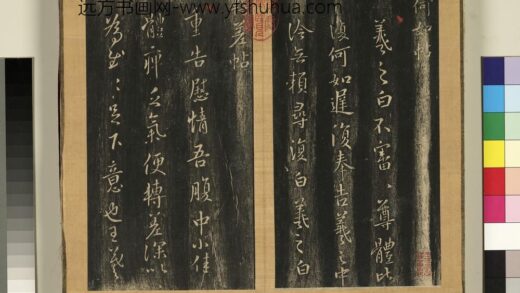 远方书画网-www.yfshuhua.com
何如帖
羲之白不審尊體比
復何如遲復奉告羲之中
冷無賴尋復白羲之白
差帖
重告慰情吾腹中小佳
體痺乏氣便轉差深以
為足下意也王羲